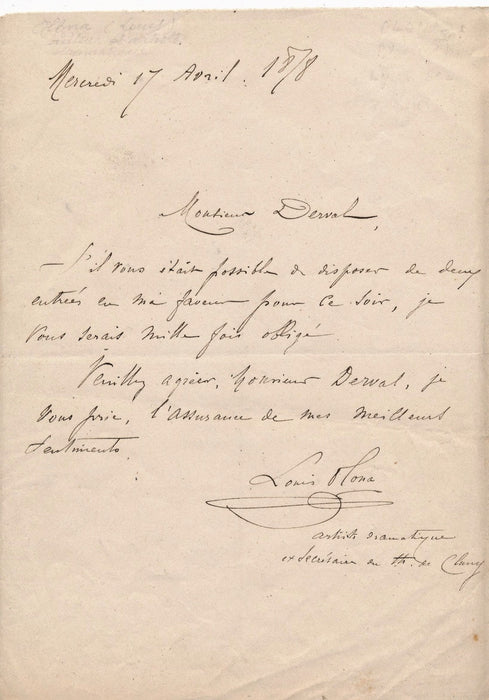 Mercredi 17 Avril. 1878
Monsieur Derval,
S'il vous était possible de disposer de deux
entrées en ma faveur pour ce soir, je
vous serais mille fois obligé
Veuillez agréer, Monsieur Derval, je
vous prie, l'assurance de mes meilleurs
sentiments.
Louis Olona
artiste dramatique
ex secrétaire du th. de Cluny